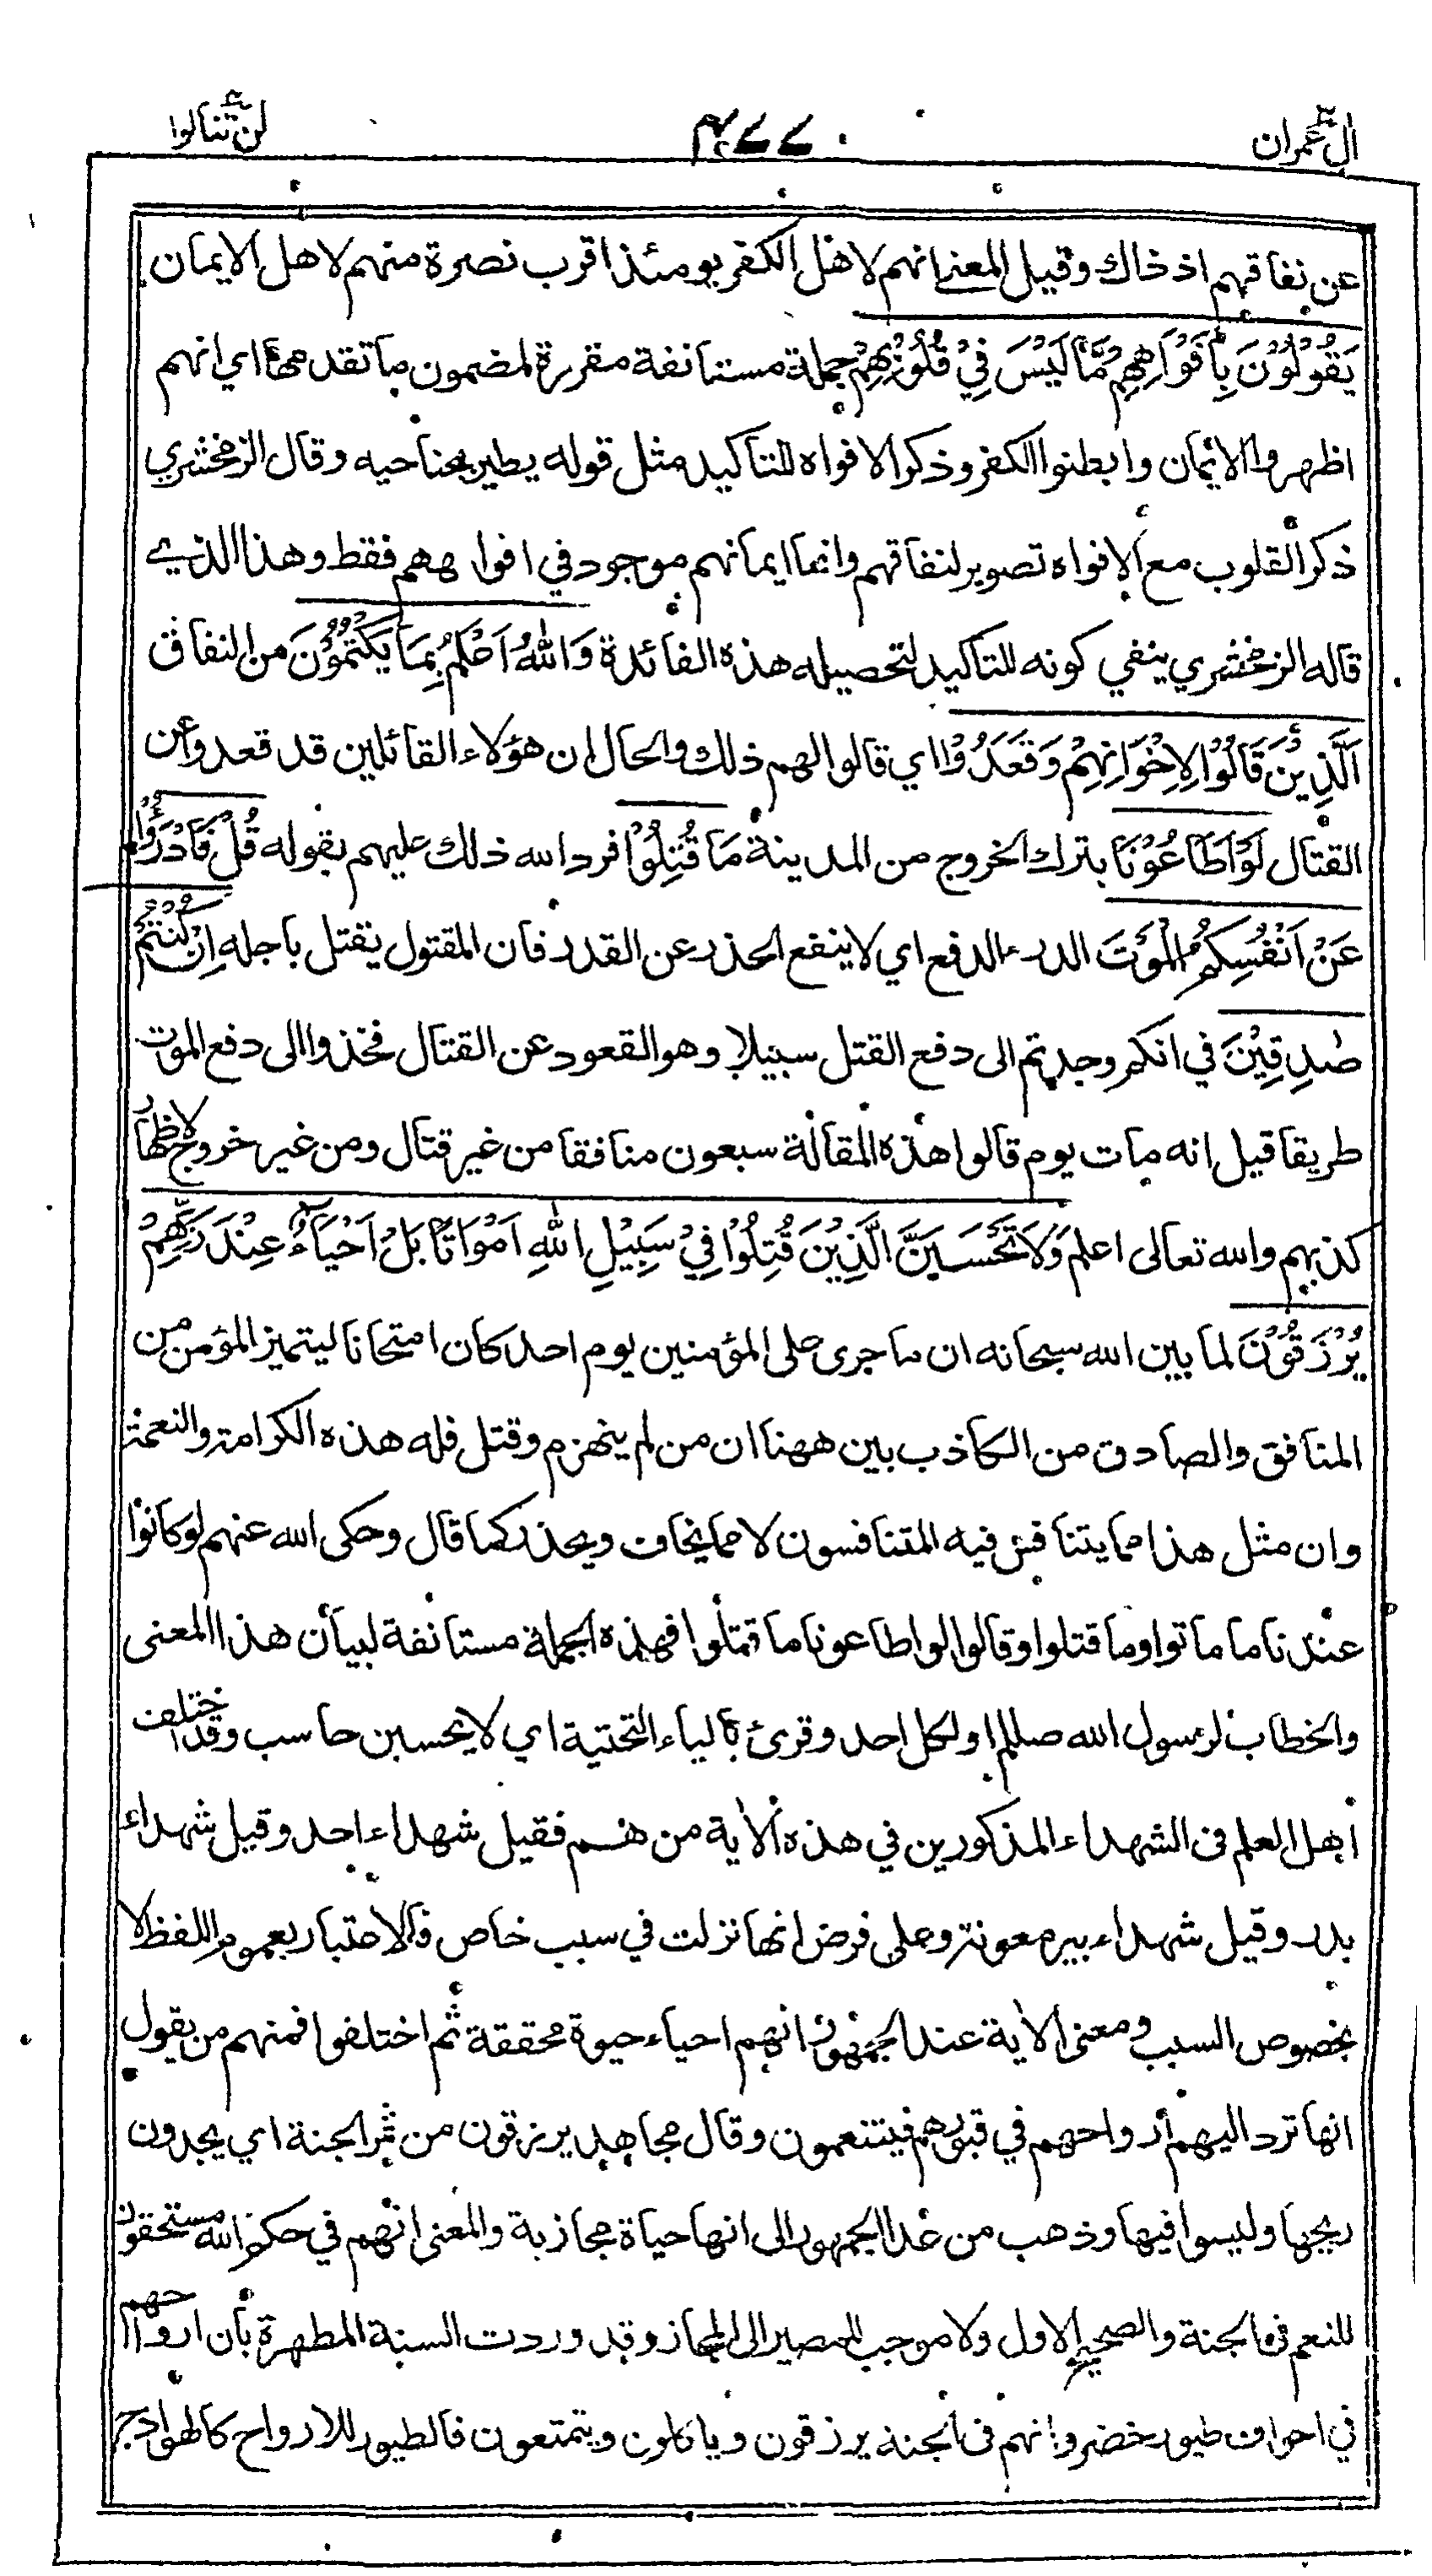 اٰل عمران ٤٧٧ لن تنالوا
عن نفاقهم اذ ذاك وقيل المعنى انهم لاهل الكفر يومئذ اقرب نصرة منهم لاهل الايمان
يَقُوْلُوْنَ بِاَفْوَاهِهِمْ مَّا لَيْسَ فِيْ قُلُوْبِهِمْ جملة مستانفة مقررة لمضمون ما تقدمها اي انهم
اظهروا الايمان وابطنوا الكفر وذكر الافواه للتاكيد مثل قوله يطير بجناحيه وقال الزمخشري
ذكر القلوب مع الافواه تصوير لنفاقهم وانما ايمانهم موجود في افواههم فقط وهذا الذي
قاله الزمخشري ينفي كونه للتاكيد لتحصيله هذه الفائدة وَاللّٰهُ اَعْلَمُ بِمَا يَكْتُمُوْنَ من النفاق
اَلَّذِيْنَ قَالُوْا لِاِخْوَانِهِمْ وَقَعَدُوْا اي قالوا لهم ذلك والحال ان هؤلاء القائلين قد قعدوا عن
القتال لَوْ اَطَاعُوْنَا بترك الخروج من المدينة مَا قُتِلُوْا فرد الله ذلك عليهم بقوله قُلْ فَادْرَءُوْا
عَنْ اَنْفُسِكُمُ الْمَوْتَ الدرء الدفع اي لا ينفع الحذر عن القدر فان المقتول يقتل باجله اِنْ كُنْتُمْ
صٰدِقِيْنَ في انكم وجدتم الى دفع القتل سبيلا وهو القعود عن القتال فخذوا الى دفع الموت
طريقا قيل انه مات يوم قالوا هذه المقالة سبعون منافقا من غير قتال ومن غير خروج لاظهار
كذبهم والله تعالى اعلم وَلَا تَحْسَبَنَّ الَّذِيْنَ قُتِلُوْا فِيْ سَبِيْلِ اللّٰهِ اَمْوَاتًا بَلْ اَحْيَآءٌ عِنْدَ رَبِّهِمْ
يُرْزَقُوْنَ لما بين الله سبحانه ان ما جرى على المؤمنين يوم احد كان امتحانا ليتميز المؤمن من
المنافق والصادق من الكاذب بين ههنا ان من لم ينهزم وقتل فله هذه الكرامة والنعمة
وان مثل هذا مما يتنافس فيه المتنافسون لا مما يخاف ويحذر كما قال وحكى الله عنهم لو كانوا
عندنا ما ماتوا وما قتلوا وقالوا لو اطاعونا ما قتلوا فهذه الجملة مستانفة لبيان هذا المعنى
والخطاب لرسول الله صللم او لكل احد وقرئ بالياء التحتية اي لا يحسبن حاسب وقد اختلف
اهل العلم فى الشهداء المذكورين في هذه الاية من هم فقيل شهداء احد وقيل شهداء
بدر وقيل شهداء بير معونة وعلى فرض انها نزلت في سبب خاص فالاعتبار بعموم اللفظ لا
بخصوص السبب ومعنى الاية عند الجمهور انهم احياء حيوة محققة ثم اختلفوا فمنهم من يقول
انها ترد اليهم ارواحهم في قبورهم فيتنعمون وقال مجاهد يرزقون من ثمر الجنة اي يجدون
ريحها وليسوا فيها وذهب من عدا الجمهور الى انها حياة مجازية والمعنى انهم في حكم الله مستحقون
للنعم فى الجنة والصحيح الاول ولا موجب للمصير الى المجاز وقد وردت السنة المطهرة بأن ارواحهم
في اجواف طيور خضر وانهم فى الجنة يرزقون وياكلون ويتمتعون فالطيور للارواح كالهوادج